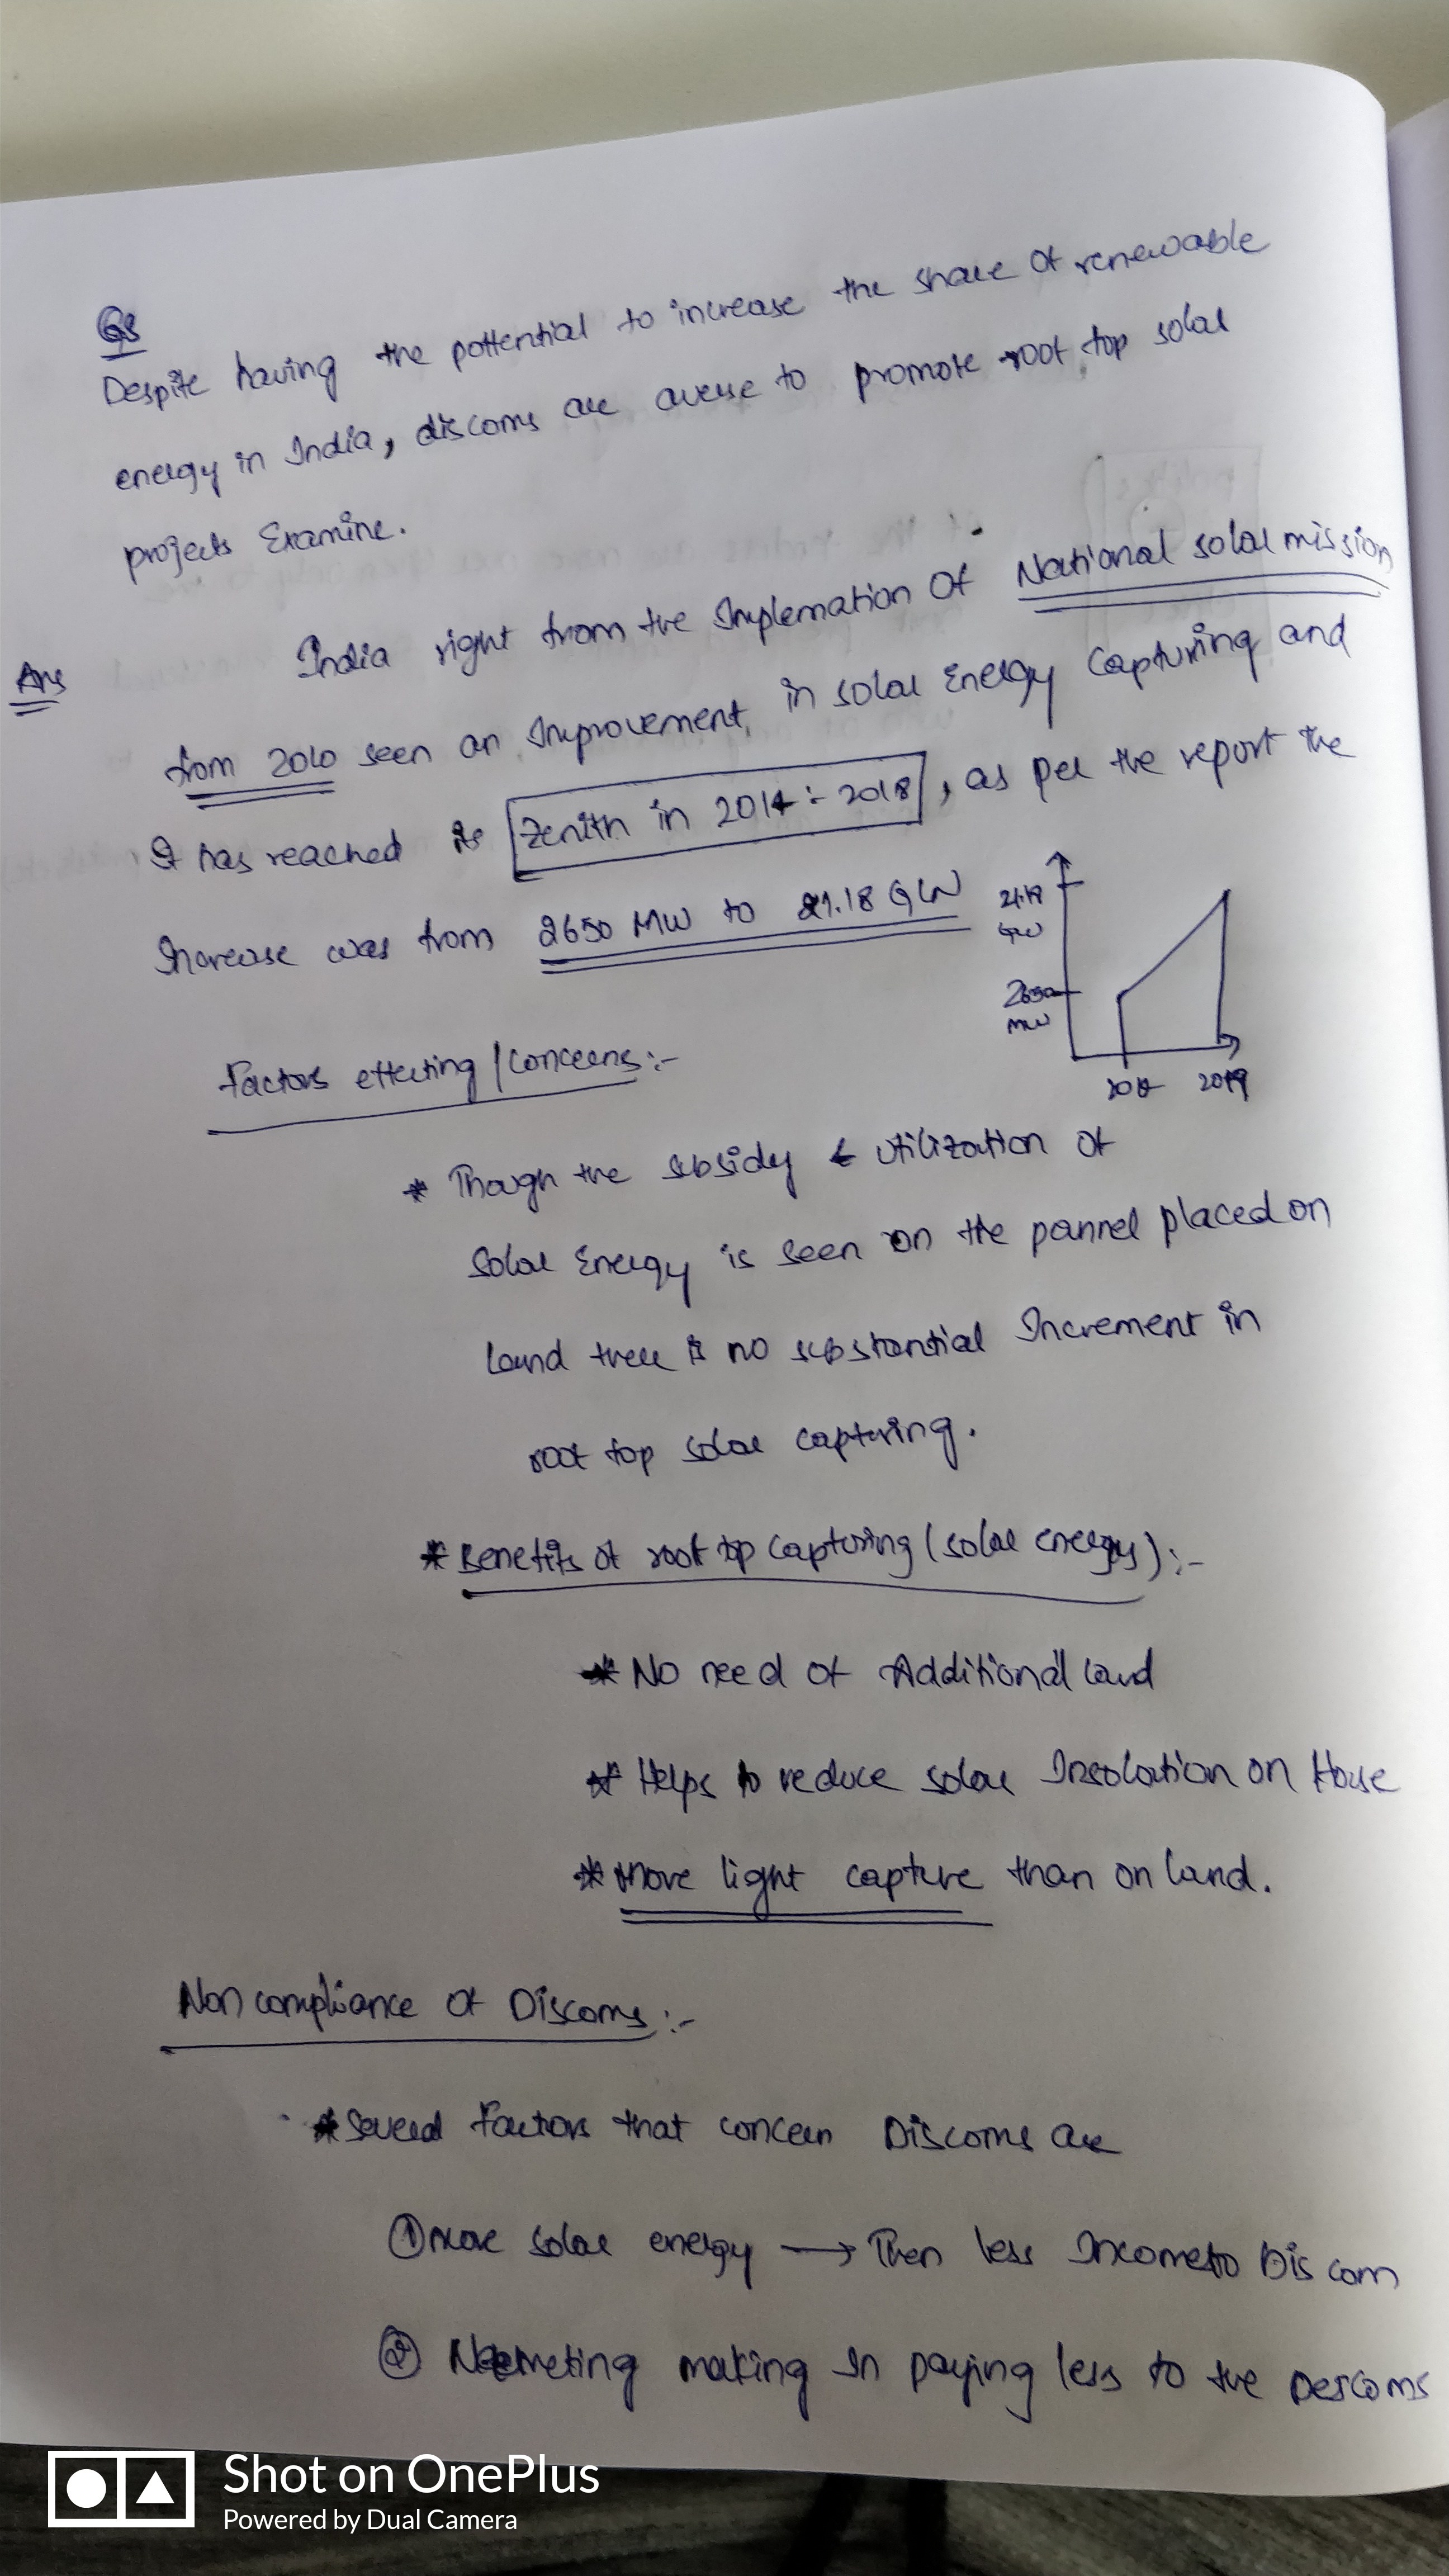 Q8
Despite having the pottential to increase the share of renewable
energy in India, discoms are averse to promote roof top solar
projects Examine.
Ans
India right from the Implemation Of National solar mission
from 2010 seen an Improvement in solar Energy Capturing and
It has reached its Zenith in 2014 :- 2018, as per the report the
Increase was from 2650 MW to 21.18 GW
GW
2650
MW
2019
Factors effecting / Concerns :-
* Though the subsidy & utilization of
Solar Energy is seen on the pannel placed on
land there is no substantial Increment in
roof top solar capturing.
* Benefits of roof top capturing (solar energy) :-
* No need of Additional land
* Helps to reduce solar Insolation on House
* More light capture than on land.
Non compliance of Discoms :-
* Several Factors that concern Discoms are
① More solar energy → Then less Income to Discom
② Netmeting making In paying less to the Descoms
Shot on OnePlus
Powered by Dual Camera